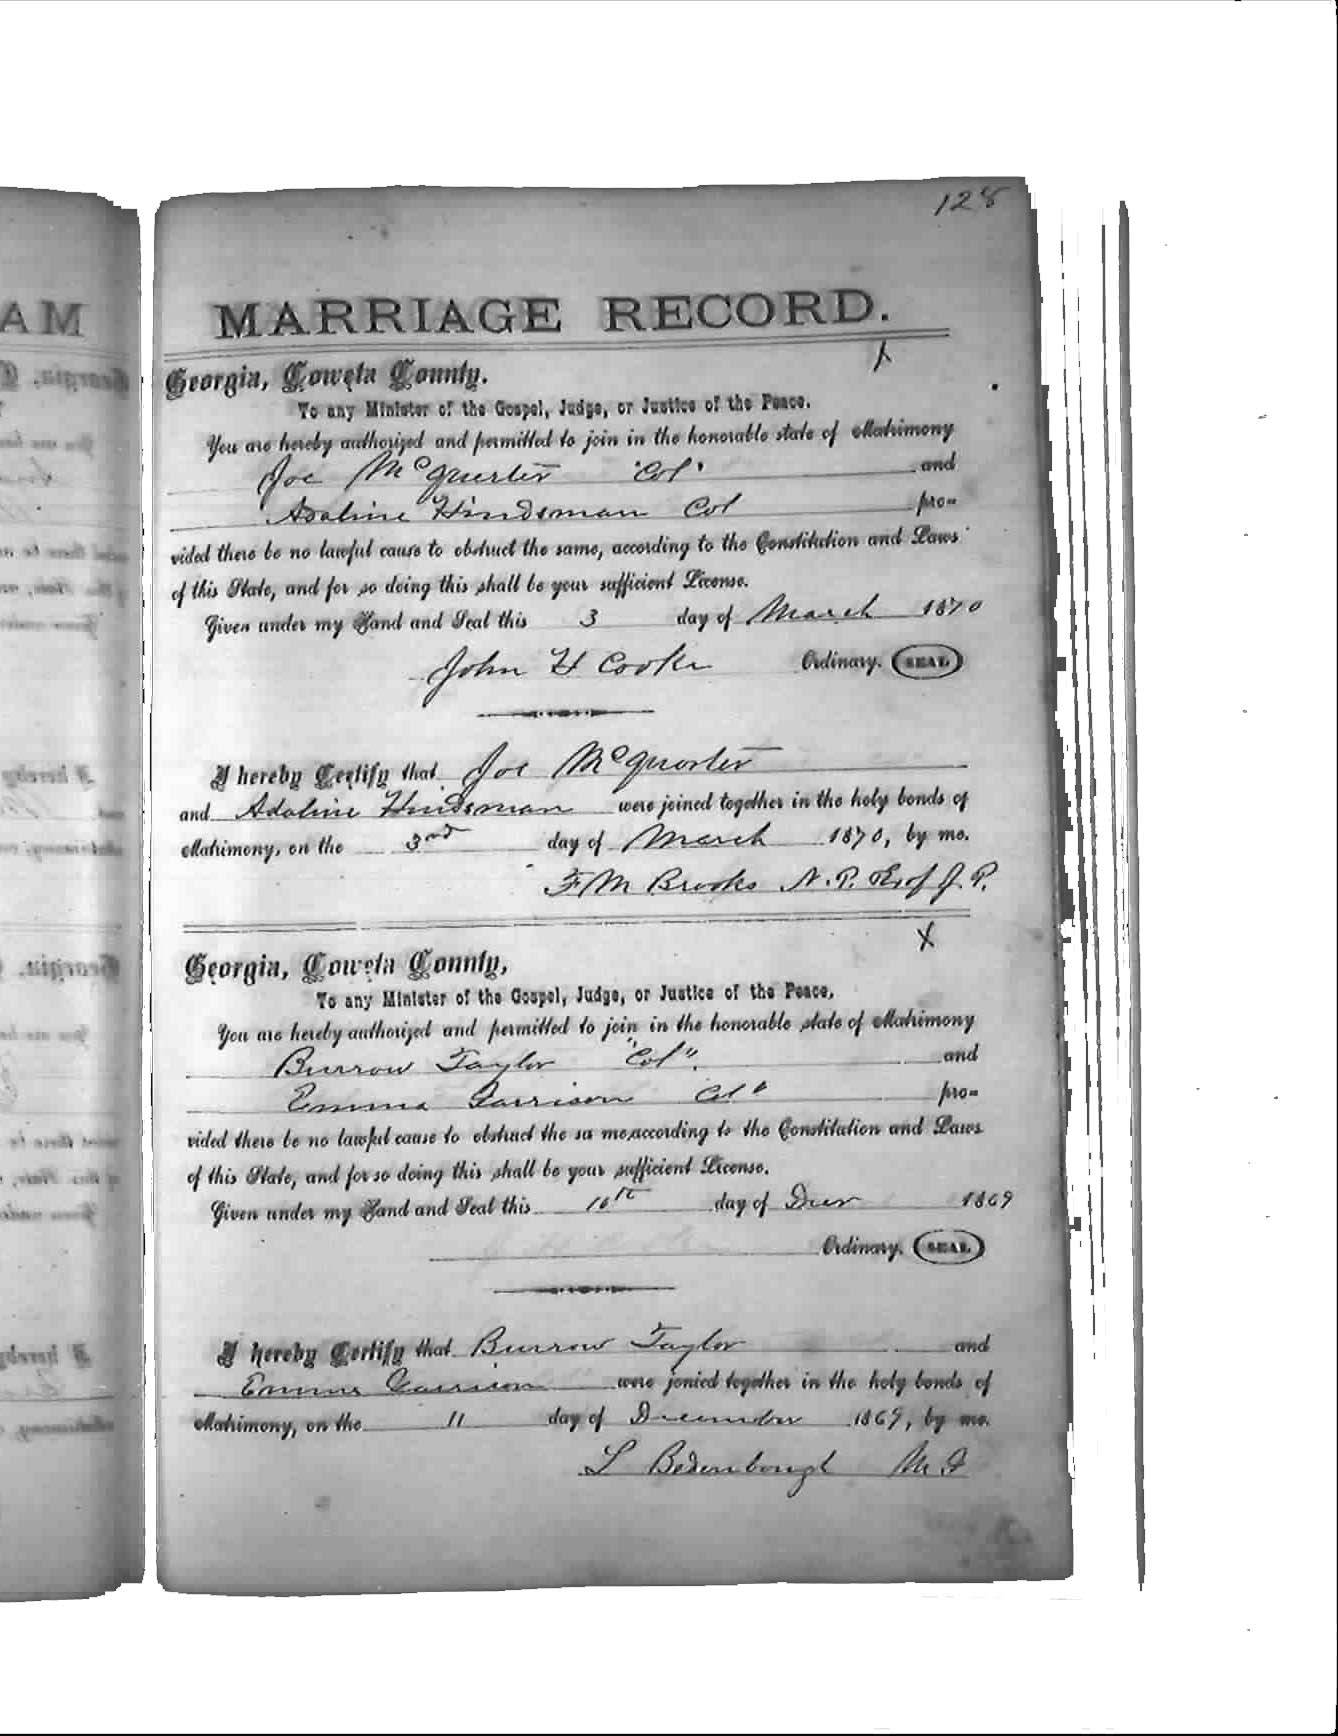 128
MARRIAGE RECORD.
X
Georgia, Coweta County.
To any Minister of the Gospel, Judge, or Justice of the Peace.
You are hereby authorized and permitted to join in the honorable state of Matrimony
Joe McQuerter "Col" and
Adaline Hindsman Col pro-
vided there be no lawful cause to obstruct the same, according to the Constitution and Laws
of this State, and for so doing this shall be your sufficient License.
Given under my Hand and Seal this 3 day of March 1870
John H Cooke Ordinary. SEAL
I hereby Certify that Joe McQuerter
and Adaline Hindsman were joined together in the holy bonds of
Matrimony, on the 3rd day of March 1870, by me.
F M Brooks N.P. Exof J.P.
X
Georgia, Coweta County,
To any Minister of the Gospel, Judge, or Justice of the Peace,
You are hereby authorized and permitted to join in the honorable state of Matrimony
Burrow Taylor "Col". and
Emma Garrison Col" pro-
vided there be no lawful cause to obstruct the sa me,according to the Constitution and Laws
of this State, and for so doing this shall be your sufficient License.
Given under my Hand and Seal this 10th day of Decr 1869
Ordinary. SEAL
I hereby Certify that Burrow Taylor and
Emma Garrison were jonied together in the holy bonds of
Matrimony, on the 11 day of December 1869, by me.
L Bedenbough M G